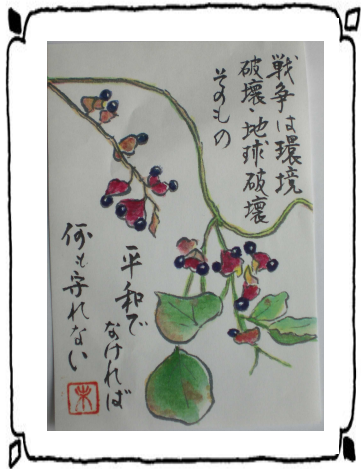 戦争は環境
破壊・地球破壊
そのもの
平和で
なければ
何も守れない